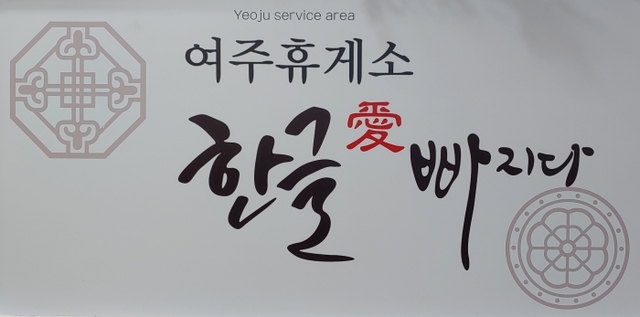 Yeoju service area
여주휴게소
한글愛빠지다